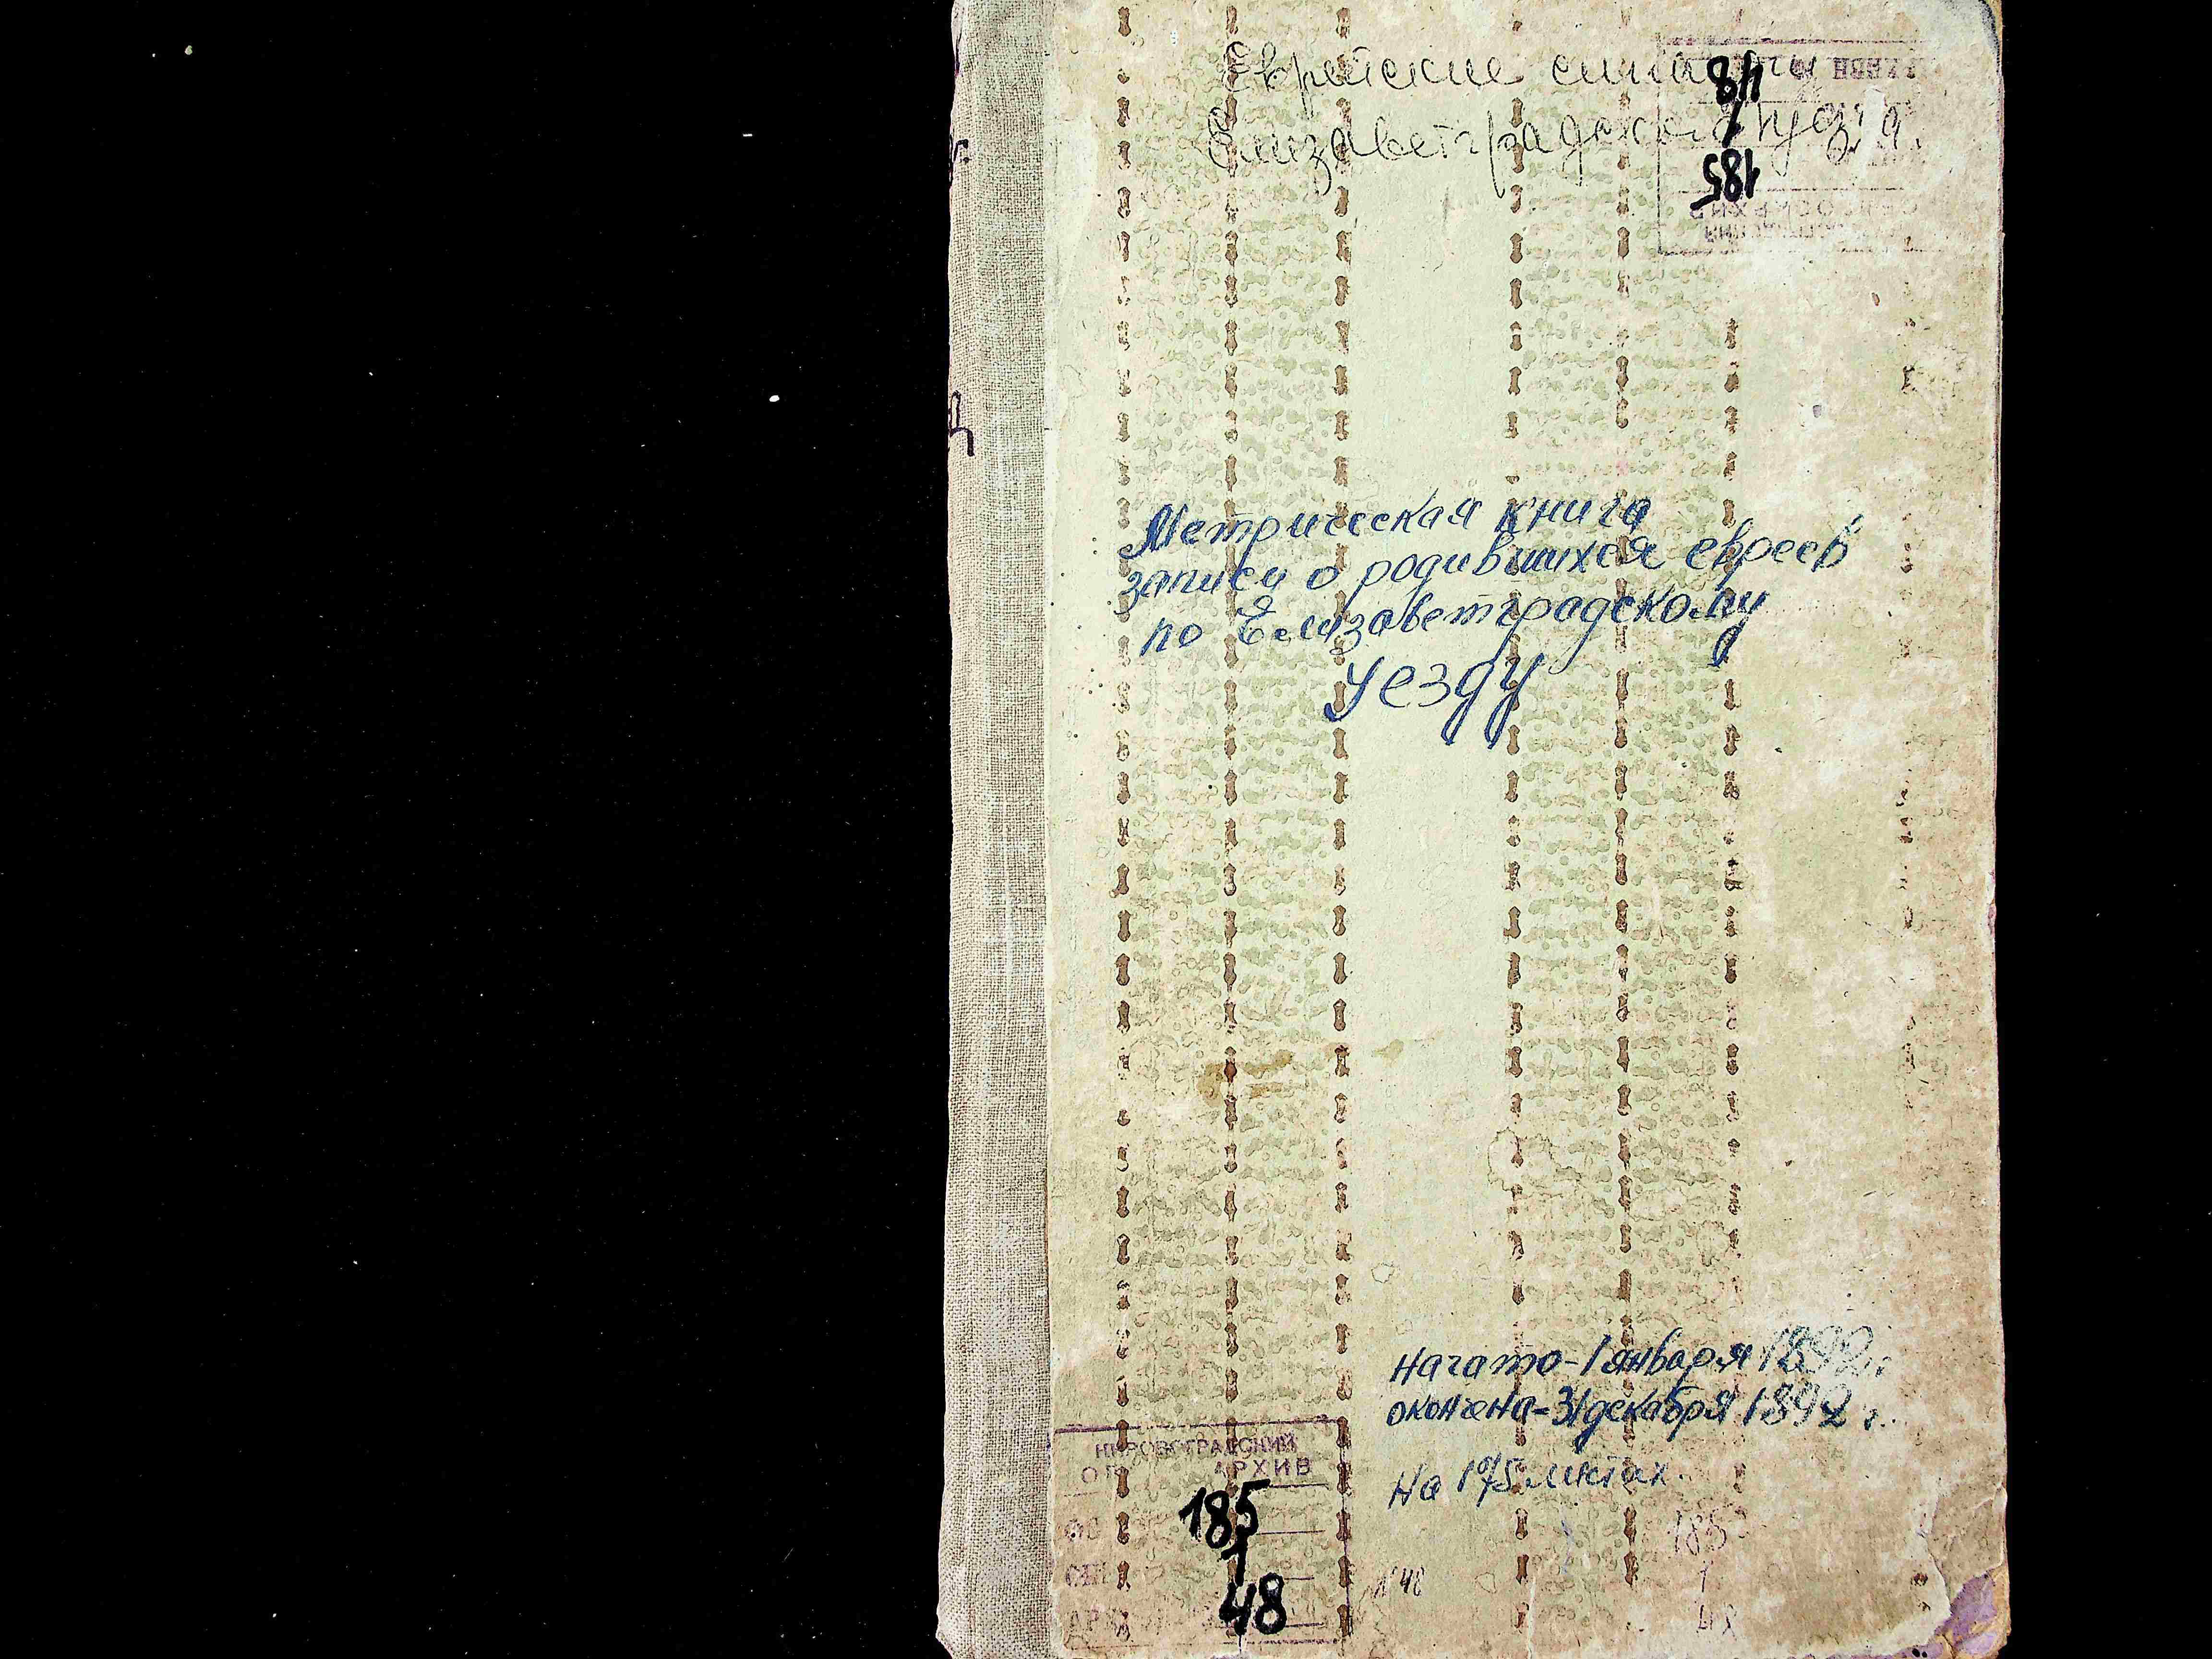 Еврейские синагоги
Елизаветградского уезда.
48
1
185
Метрическая книга
записи о родившихся евреев
по Елизаветградскому
уезду
Начато - 1 января 1892 г.
окончена - 31 декабря 1892 г.
На 175 листах.
КИРОВОГРАДСКИЙ
АРХИВ
185
1
48
№48
185
1
48